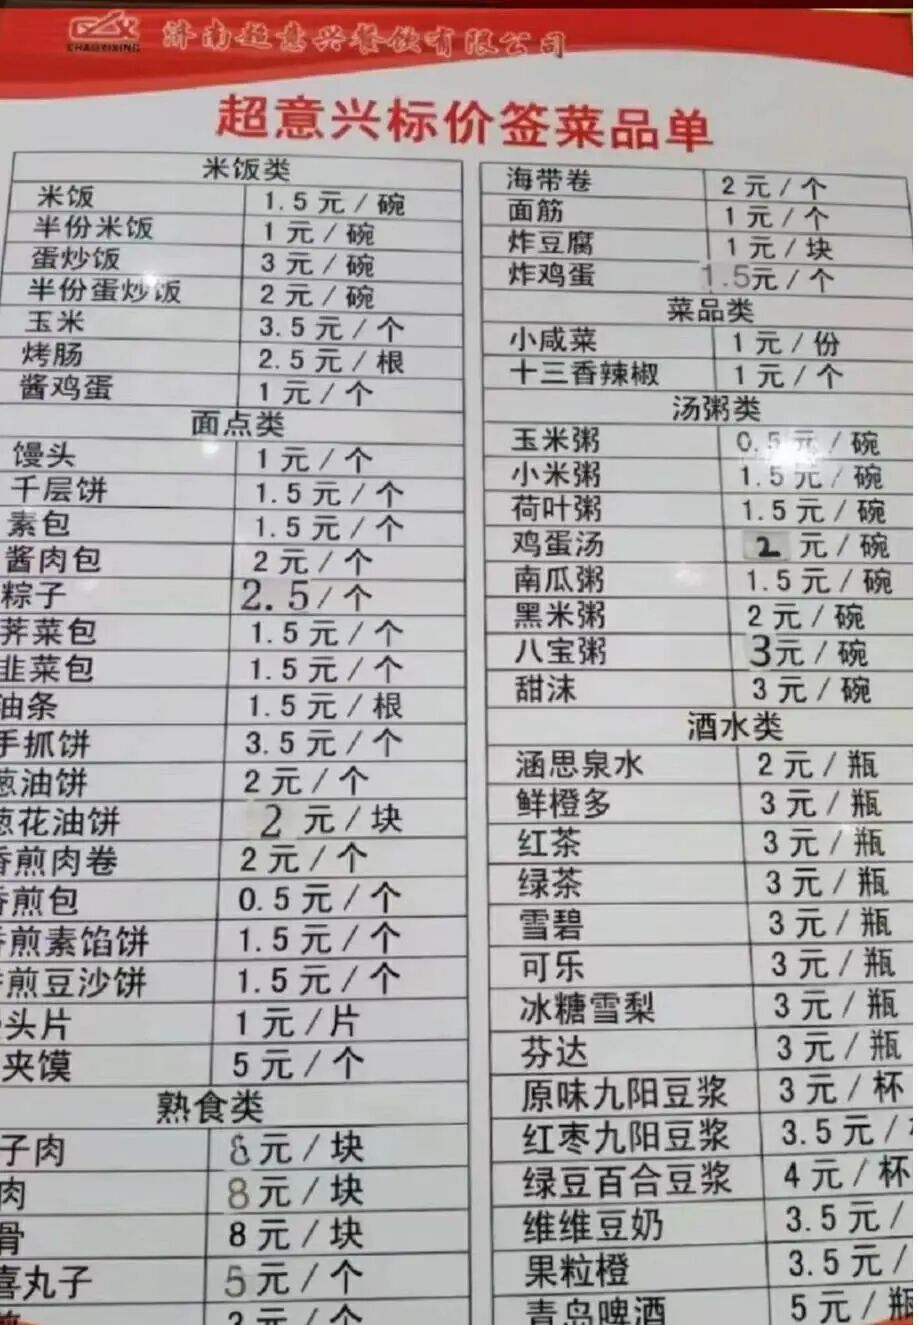 CHAOYIXING 济南超意兴餐饮有限公司
超意兴标价签菜品单
米饭类
米饭 1.5元/碗
半份米饭 1元/碗
蛋炒饭 3元/碗
半份蛋炒饭 2元/碗
玉米 3.5元/个
烤肠 2.5元/根
酱鸡蛋 1元/个
面点类
馒头 1元/个
千层饼 1.5元/个
素包 1.5元/个
酱肉包 2元/个
粽子 2.5/个
荠菜包 1.5元/个
韭菜包 1.5元/个
油条 1.5元/根
手抓饼 3.5元/个
葱油饼 2元/个
葱花油饼 2元/块
香煎肉卷 2元/个
香煎包 0.5元/个
香煎素馅饼 1.5元/个
香煎豆沙饼 1.5元/个
头片 1元/片
夹馍 5元/个
熟食类
子肉 8元/块
肉 8元/块
骨 8元/块
喜丸子 5元/个
2元/个
海带卷 2元/个
面筋 1元/个
炸豆腐 1元/块
炸鸡蛋 1.5元/个
菜品类
小咸菜 1元/份
十三香辣椒 1元/个
汤粥类
玉米粥 0.5元/碗
小米粥 1.5元/碗
荷叶粥 1.5元/碗
鸡蛋汤 2元/碗
南瓜粥 1.5元/碗
黑米粥 2元/碗
八宝粥 3元/碗
甜沫 3元/碗
酒水类
涵思泉水 2元/瓶
鲜橙多 3元/瓶
红茶 3元/瓶
绿茶 3元/瓶
雪碧 3元/瓶
可乐 3元/瓶
冰糖雪梨 3元/瓶
芬达 3元/瓶
原味九阳豆浆 3元/杯
红枣九阳豆浆 3.5元/
绿豆百合豆浆 4元/杯
维维豆奶 3.5元/
果粒橙 3.5元/
青岛啤酒 5元/瓶